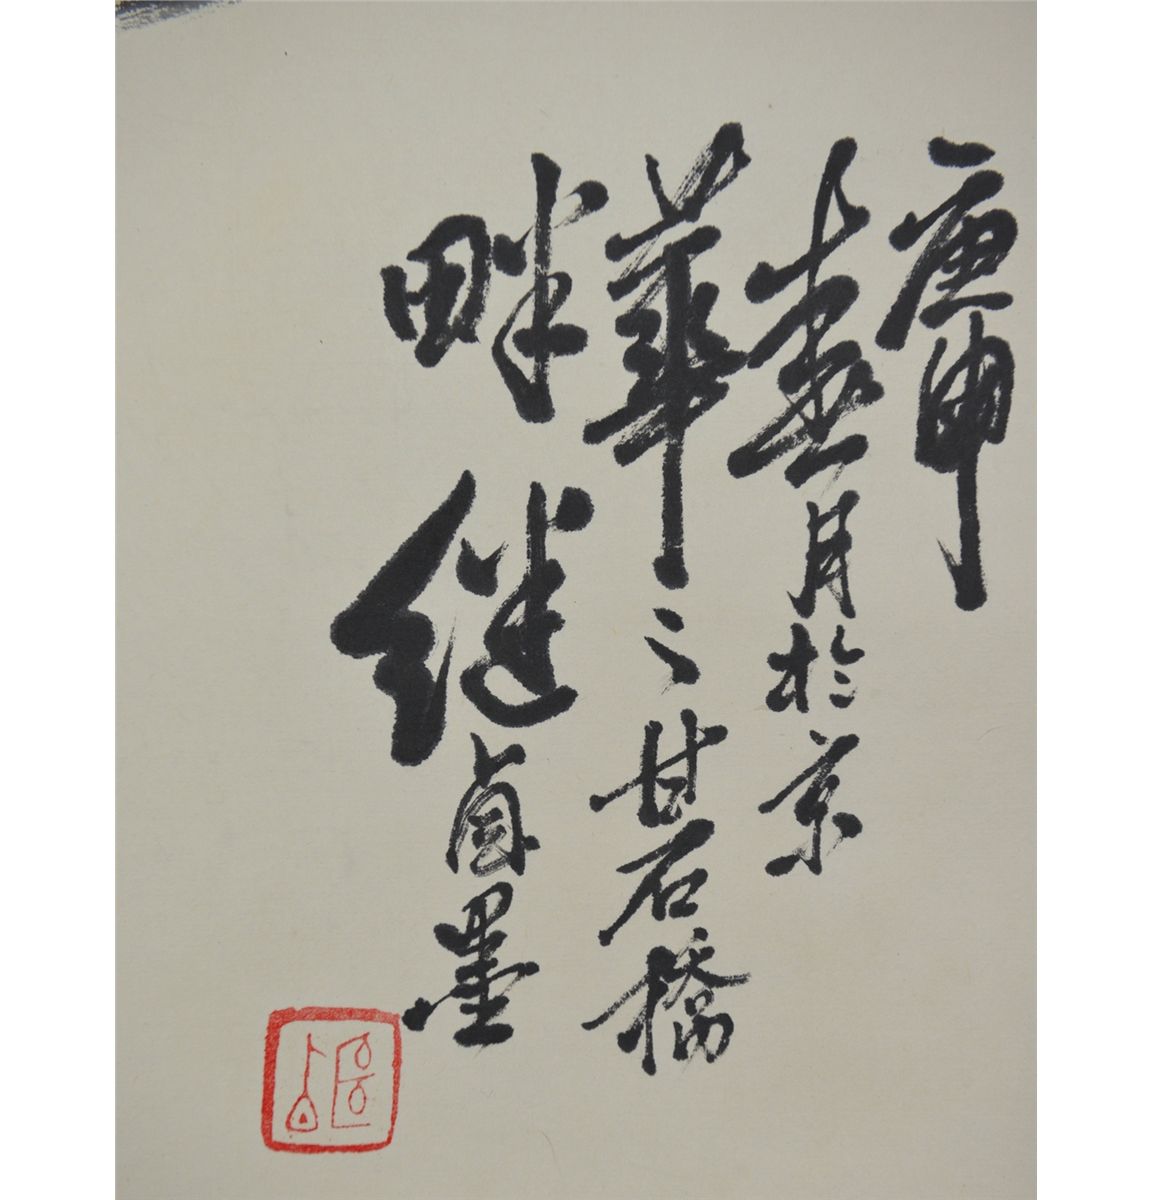 庚申
月於京
華之甘石橋
畔 继卣墨
继卣